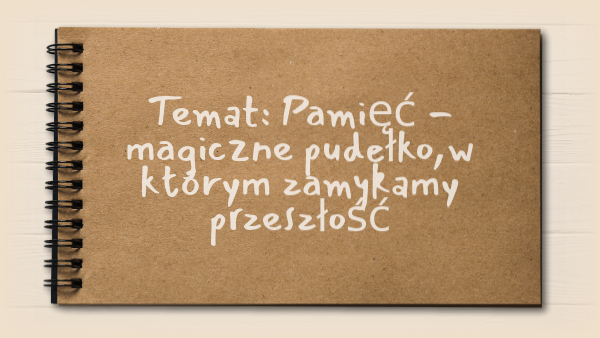 Temat: Pamięć –
magiczne pudełko, w
którym zamykamy
przeszłość